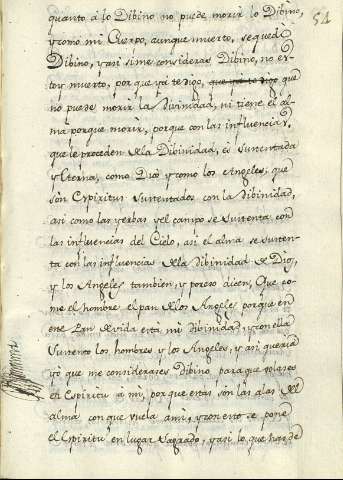 54
quanto à lo Dibino no puede morir lo Dibino,
y como mi Cuerpo, aunque muerto, se quedò
Dibino, y asi si me consideras Dibino, no es-
toy muerto, por que yà te digo, que yà te digo que
no puede morir la Divinidad, ni tiene el al-
ma porque morir, porque con las influencias,
que le proceden de la Dibinidad, es sustentada
y Eterna, como Dios y como los Angeles, que
son Espiritus sustentados con la dibinidad,
asi como las yerbas y el campo se sustenta con
las influencias del Cielo, asi el alma se susten-
ta con las influencias de la Dibinidad de Dios,
y los Angeles tambien, y por eso dicen, Que co-
me el hombre el pan de los Angeles porque en
este Pan de vida està mi Dibinidad, y con ella
sustento los hombres y los Angeles, y asi queria
yò que me considerases Dibino para que volases
en Espiritu a mi, por que estas son las alas del
alma con que vuela a mi, y con esto se pone
el Espiritu en lugar Sagrado, y asi lo que has de